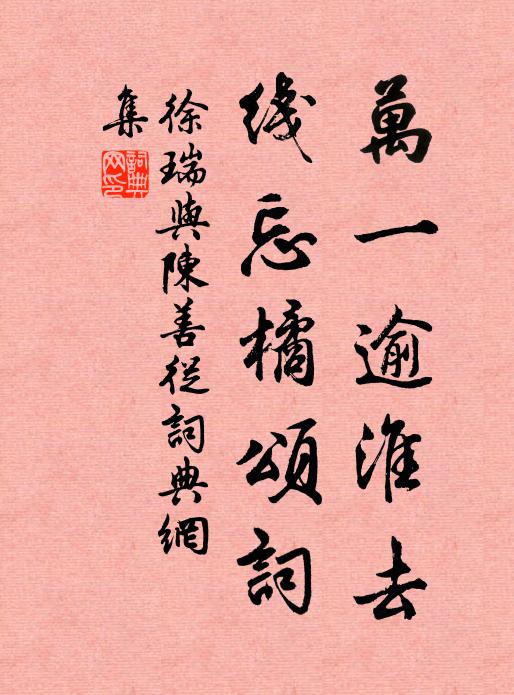 萬一逾淮去
线忘橘頌詞
徐瑞與陳善從詞典網
集
詞典网印